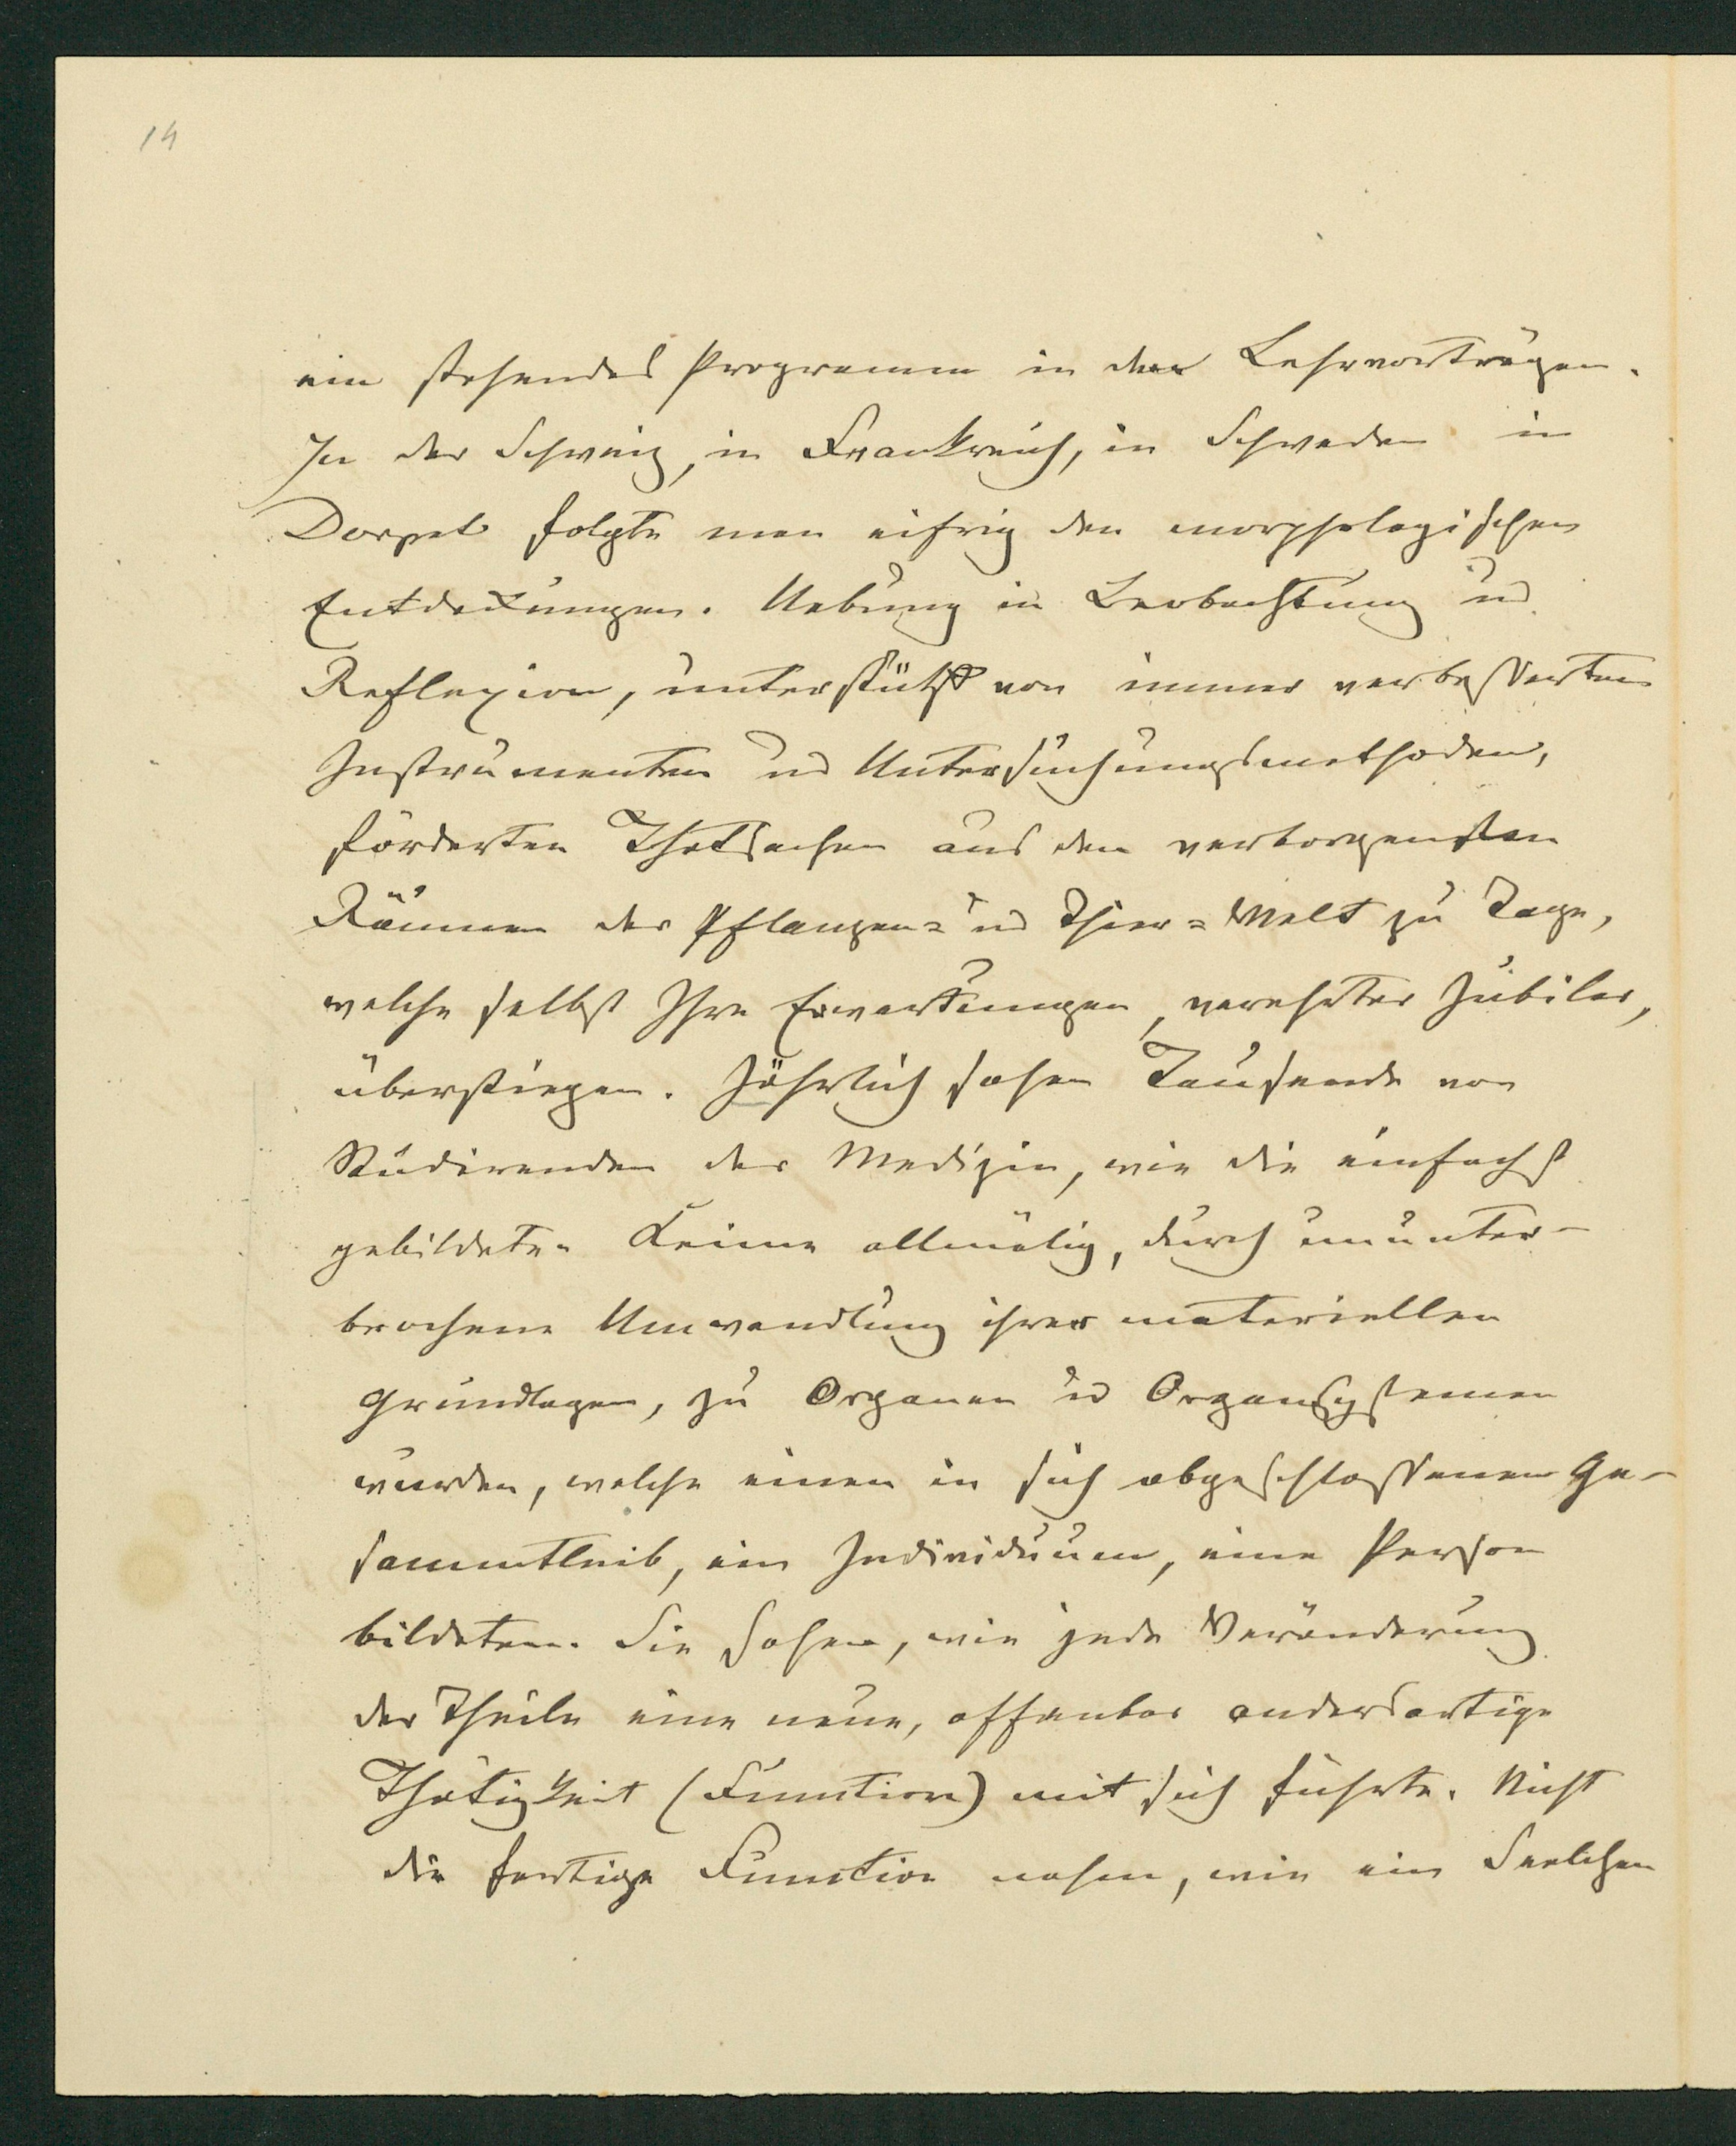 14
ein stehendes Programm in den Lehrvorträgen.
In der Schweiz, in Frankreich, in Schweden in
Dorpat folgte man eifrig den morphologischen
Entdeckungen. Uebung in Beobachtung und
Reflexion, unterstützt von immer verbesserten
Instrumenten und Untersuchungsmethoden,
förderten Thatsachen aus den verborgensten
Räumen der Pflanzen= und Thier=Welt zu Tage,
welche selbst Ihre Erwartungen, verehrter Jubilar,
überstiegen. Jährlich sahen Tausende von
Studirenden der Medizin, wie die einfachst
gebildeten Keime allmälig, durch ununter-
brochene Umwandlung ihrer materiellen
Grundlagen, zu Organen und Organsystemen
wurden, welche einen in sich abgeschlossenen Ge-
sammtleib, ein Individuum, eine Person
bildeten. Sie sahen, wie jede Veränderung
der Theile eine neue, offenbar andersartige
Thätigkeit (Function) mit sich führte. Nicht
die fertige Function nahm, wie ein Seelchen